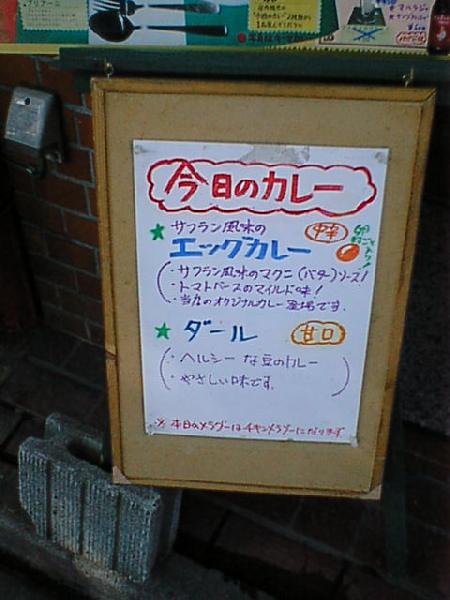 今日のカレー
サフラン風味の
エッグカレー
中辛
・サフラン風味のマクニ(バター)ソース!
・トマトベースのマイルド味!
・当店のオリジナルカレー登場です.
ダール
甘口
・ヘルシーな豆のカレー
・やさしい味です.
※本日のメラゲーはチキンメラゲーになります